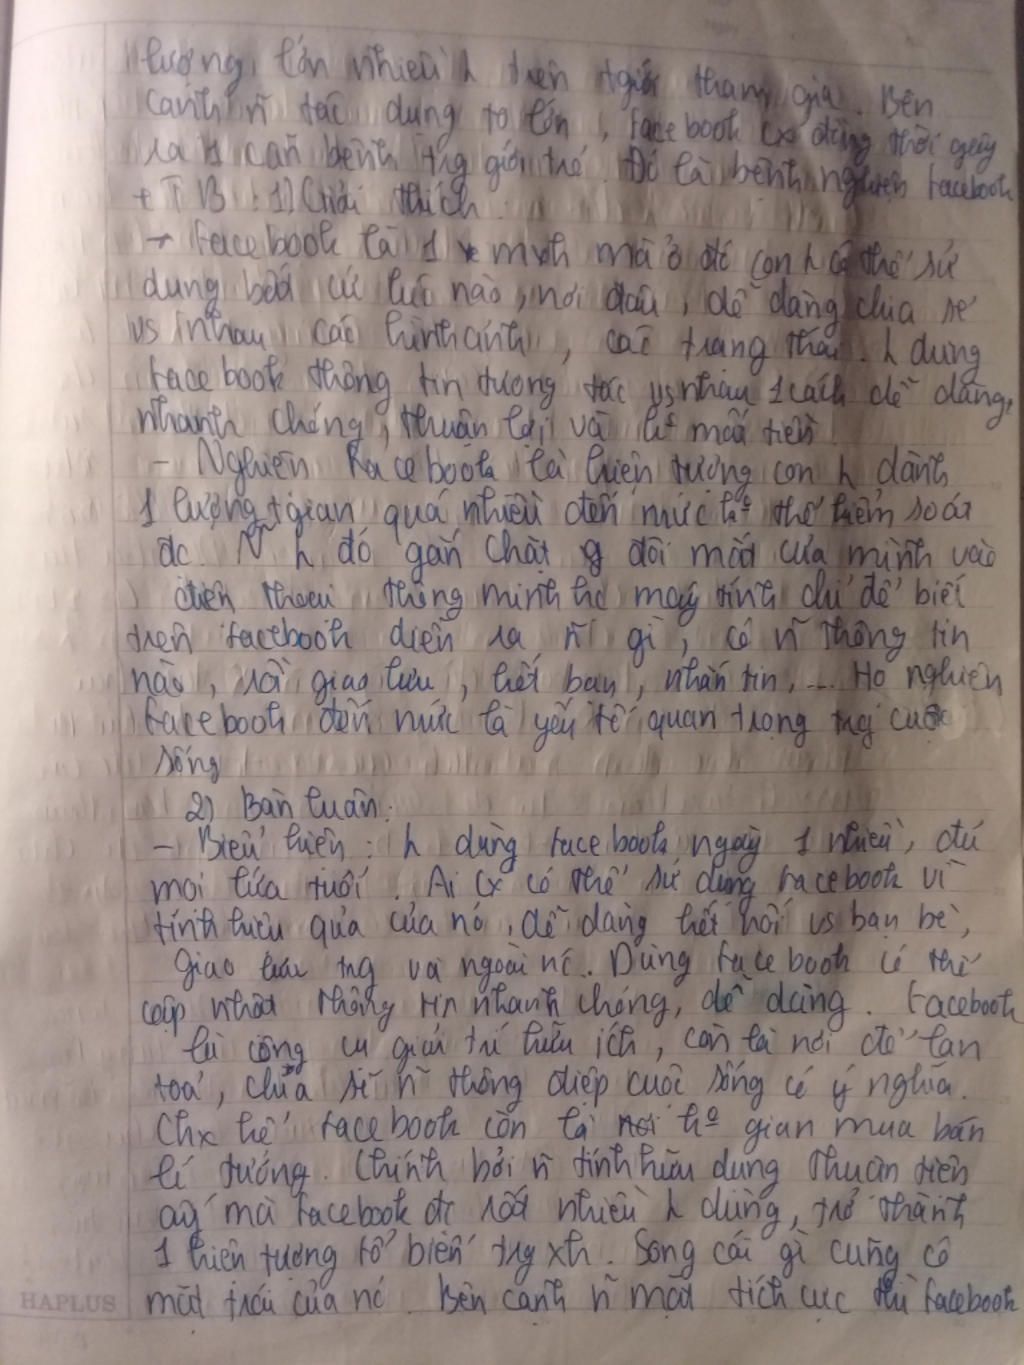 lượng lớn nhiều h trên tgiới tham gia. Bên
cạnh n~ tác dụng to lớn, Facebook cx đồng thời gây
ra 1 căn bệnh trg giới trẻ. Đó là bệnh nghiện Facebook
+ TB: 1) Giải thích
- Facebook là 1 mxh mà ở đó con h có thể sử
dụng bất cứ lúc nào, nơi đâu, dễ dàng chia sẻ
vs nhau các hình ảnh, các trạng thái. h dùng
Facebook thông tin tương tác vs nhau 1 cách dễ dàng,
nhanh chóng, thuận lợi và k° mất tiền
- Nghiện Facebook là hiện tượng con h dành
1 lượng tgian quá nhiều đến mức k° thể kiểm soát
đc. N~ h đó gắn chặt đôi mắt của mình vào
điện thoại thông minh hc máy tính chỉ để biết
trên facebook diễn ra n~ gì, có n~ thông tin
nào, rồi giao lưu, kết bạn, nhắn tin, ... Họ nghiện
Facebook đến mức là yếu tố quan trọng trg cuộc
sống
2) Bàn luận:
- Biểu hiện: h dùng facebook ngày 1 nhiều, đủ
mọi lứa tuổi. Ai cx có thể sử dụng Facebook vì
tính hiệu quả của nó, dễ dàng kết nối vs bạn bè,
giao lưu trg và ngoài nc. Dùng Facebook có thể
cập nhật thông tin nhanh chóng, dễ dàng. Facebook
là công cụ giải trí hữu ích, còn là nơi để lan
toả, chia sẻ n~ thông điệp cuộc sống có ý nghĩa.
Chx kể Facebook còn là nơi k° gian mua bán
lí tưởng. Chính bởi n~ tính hữu dụng thuận tiện
ấy mà Facebook đc rất nhiều h dùng, trở thành
1 hiện tượng phổ biến trg xh. Song cái gì cũng có
mặt trái của nó. Bên cạnh n~ mặt tích cực thì Facebook
HAPLUS